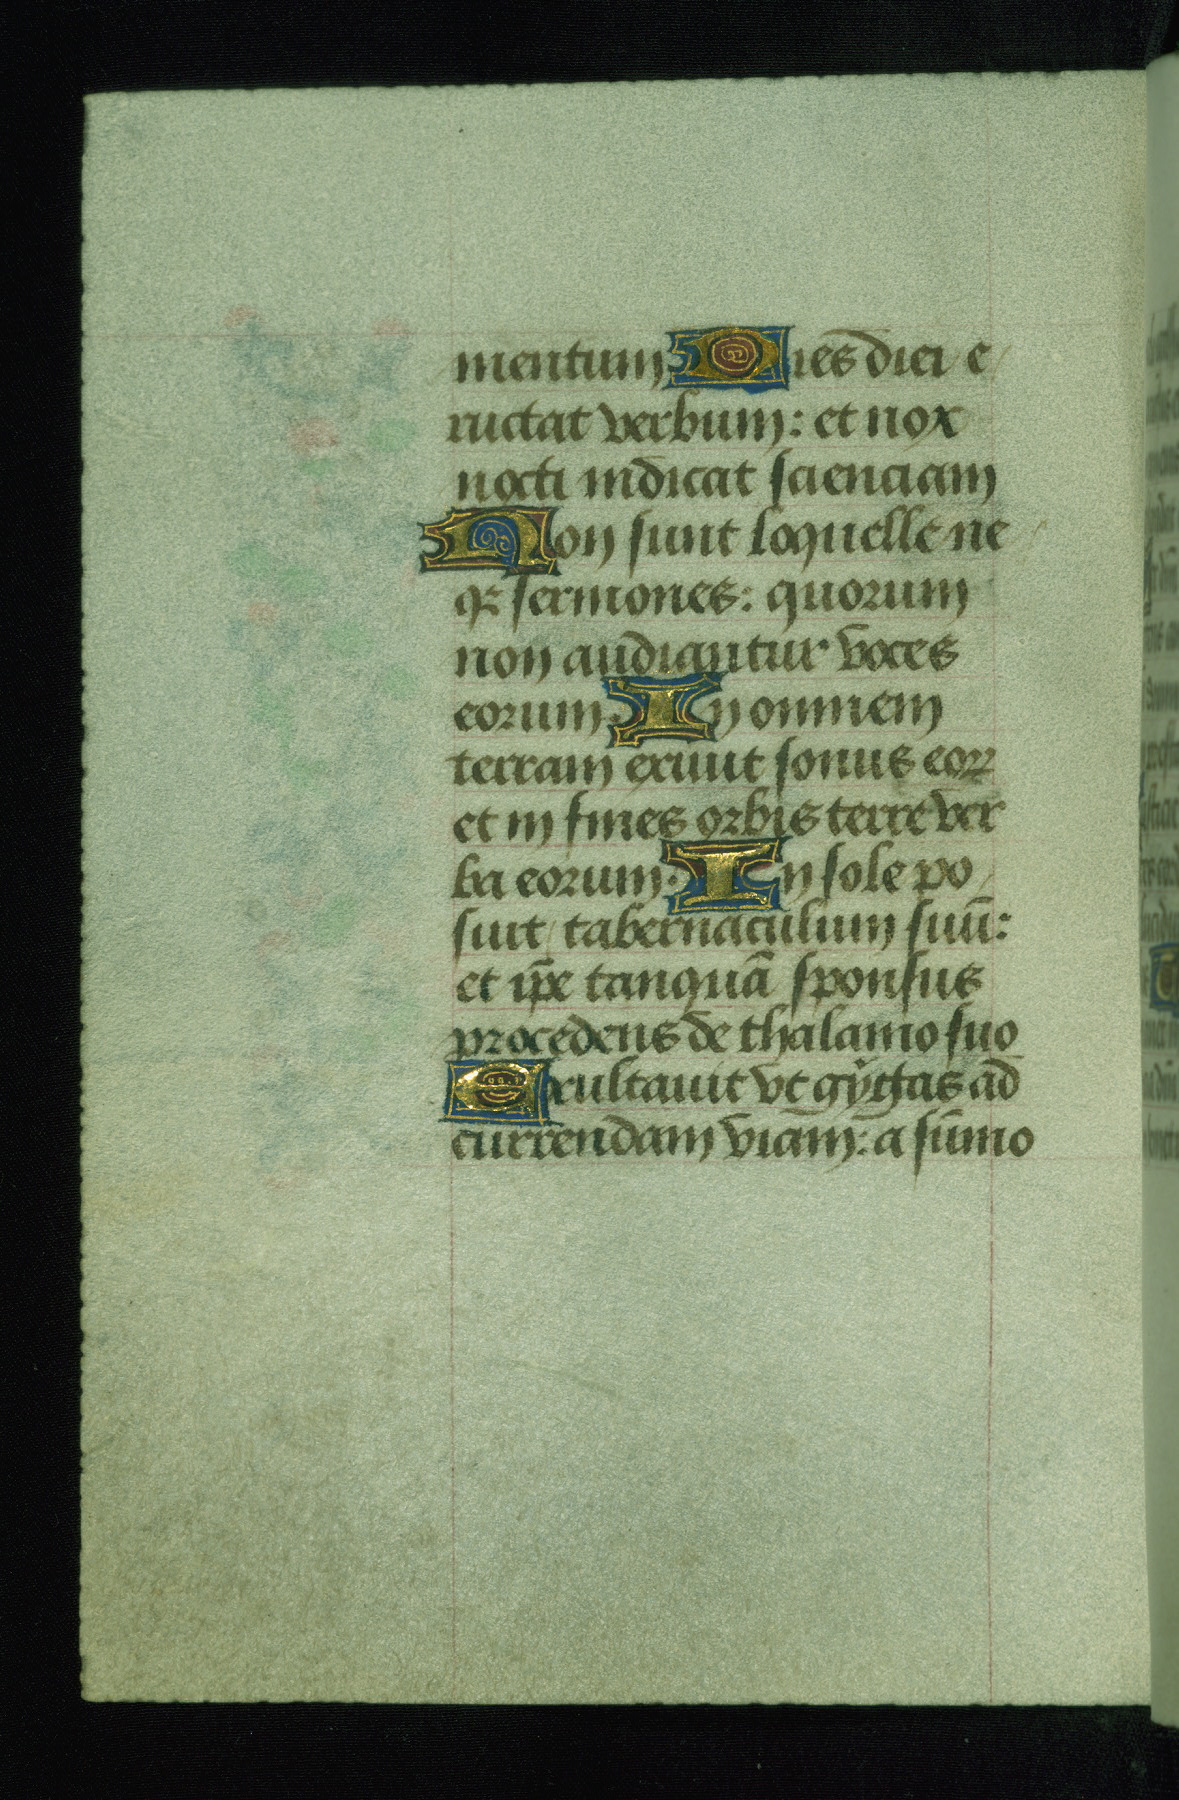 mentum Dies diei e
ructat verbum: et nox
nocti indicat scienciam
Non sunt loquelle ne
qꝫ sermones: quorum
non audiantur voces
eorum. In omnem
terram exiuit sonus eoꝝ
et in fines orbis terre ver
ba eorum. In sole po
suit tabernaculum suū:
et ip̄e tanquā sponsus
procedens de thalamo suo
Exultauit vt gygas ad
currendam viam: a sūmo